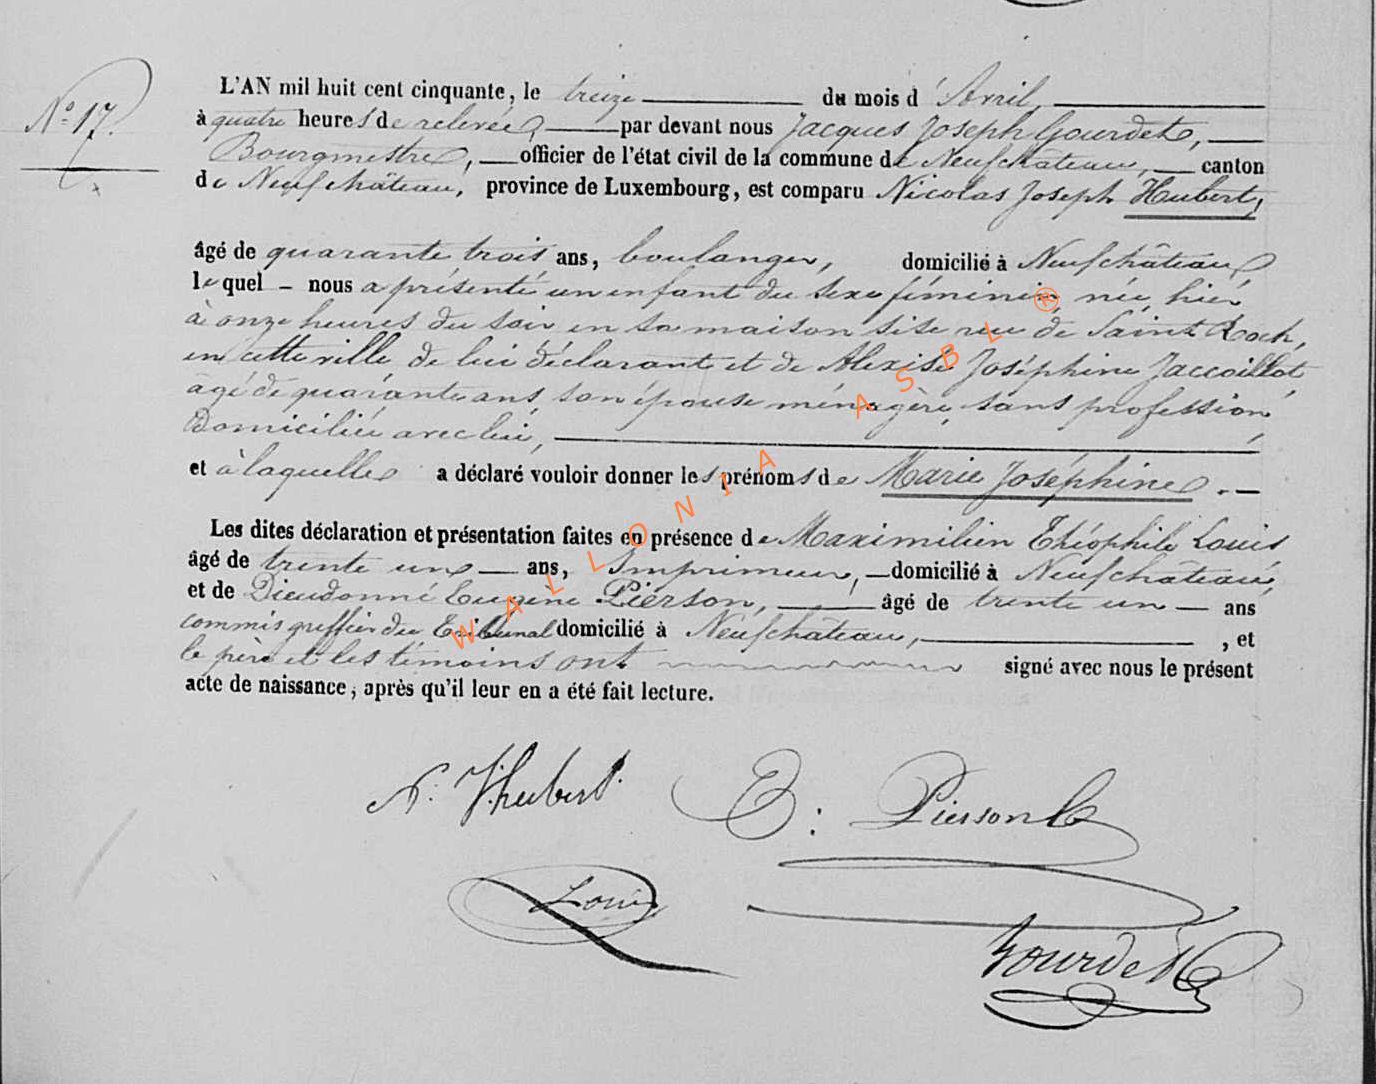 N° 17.
L'AN mil huit cent cinquante, le treize du mois d'Avril,
à quatre heures de relevée, par devant nous Jacques Joseph Gourdet,
Bourgmestre, officier de l'état civil de la commune de Neufchâteau, canton
de Neufchâteau, province de Luxembourg, est comparu Nicolas Joseph Hubert,
âgé de quarante trois ans, boulanger, domicilié à Neufchâteau
lequel – nous a présenté un enfant du sexe féminin née hier
à onze heures du soir en sa maison sise rue de Saint Roch,
en cette ville de lui déclarant et de Alexise Joséphine Jaccoillot
âgé de quarante ans son épouse ménagère, sans profession
Domiciliée avec lui,
et à laquelle a déclaré vouloir donner les prénoms de Marie Joséphine. –
Les dites déclaration et présentation faites en présence de Maximilien Théophile Louis
âgé de trente un ans, Imprimeur, – domicilié à Neufchâteau,
et de Dieudonné Eugène Piérson, âgé de trente un – ans
commis greffier du Tribunal domicilié à Neufchâteau, , et
le père et les témoins ont signé avec nous le présent
acte de naissance, après qu'il leur en a été fait lecture.
N. J. hubert. E: Pierson
Louis
Gourdet
WALLONIA ASBL ®